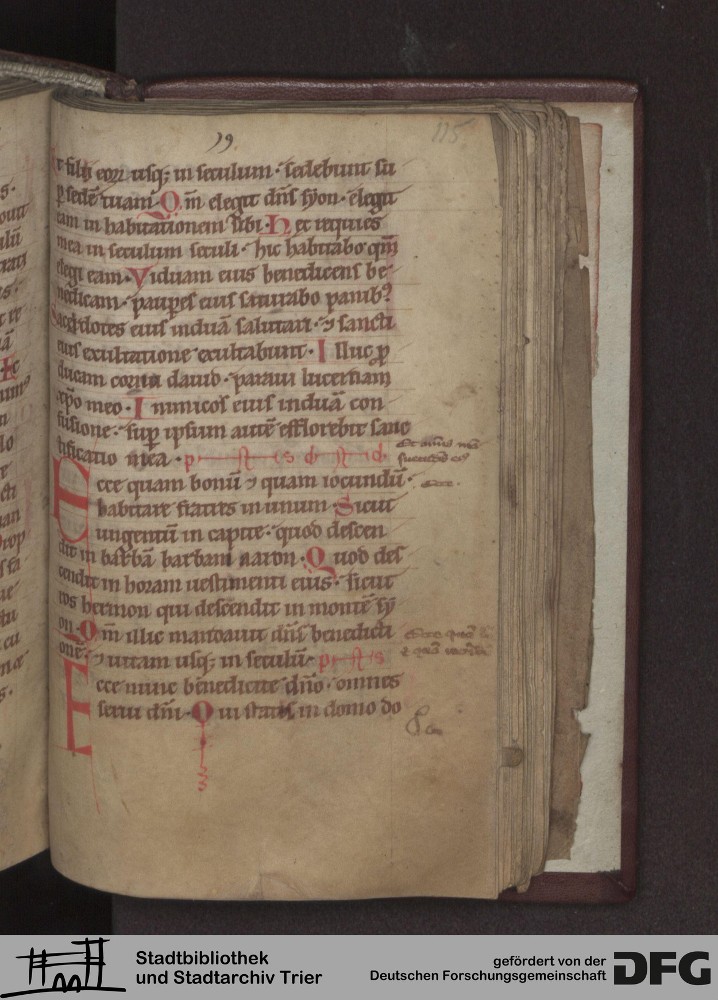 19.
115
t filij eorȝ usqȝ in seculum · sedebunt su
p sedē tuam · Qm̄ elegit dn̄s syon · elegit
eam in habitationem sibi · hec requies
mea in seculum seculi · hic habitabo qm̄
elegi eam · Viduam eius benedicens be
nedicam · paupes eius saturabo panib?
Sacerdotes eius induā salutari · ⁊ sancti
eius exultatione exultabunt · Illuc p
ducam cornu dauid · paraui lucernam
xp̄o meo · Inimicos eius induā con
fusione · sup ipsum autē efflorebit sanc
tificatio mea ·
Ecce quam bonū ⁊ quam iocundū ·
habitare fratres in unum · Sicut
ungentū in capite · quod descen
dit in barbā barbam aaron · Quod des
cendit in horam uestimenti eius · sicut
ros hermon qui descendit in montē sy
on · Qm̄ illic mandauit dn̄s benedicti
onē · ⁊ uitam usqȝ in seculū ·
Ecce nunc benedicite dn̄o · omnes
serui dn̄i · Qui statis in domo do
Stadtbibliothek
und Stadtarchiv Trier
gefördert von der
Deutschen Forschungsgemeinschaft
DFG